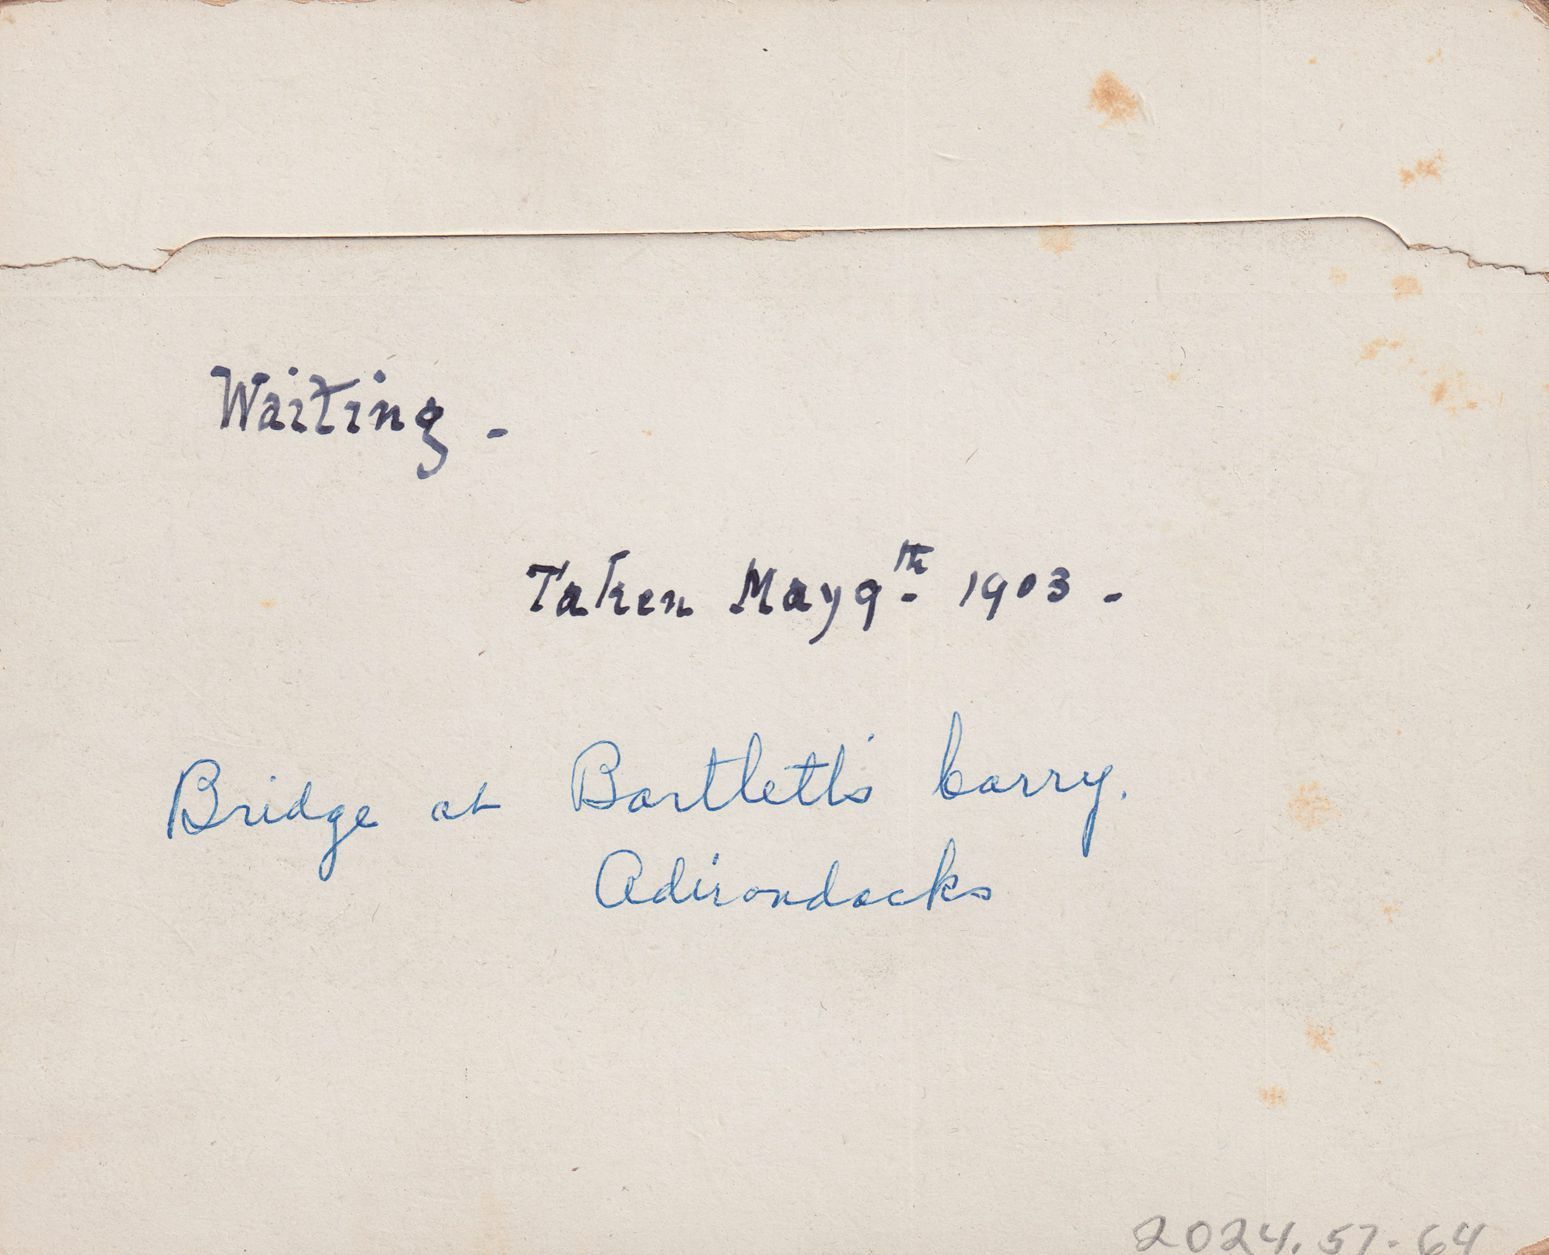 Waiting -
Taken May 9th 1903 -
Bridge at Bartlett's Carry.
Adirondacks
2024.57-64